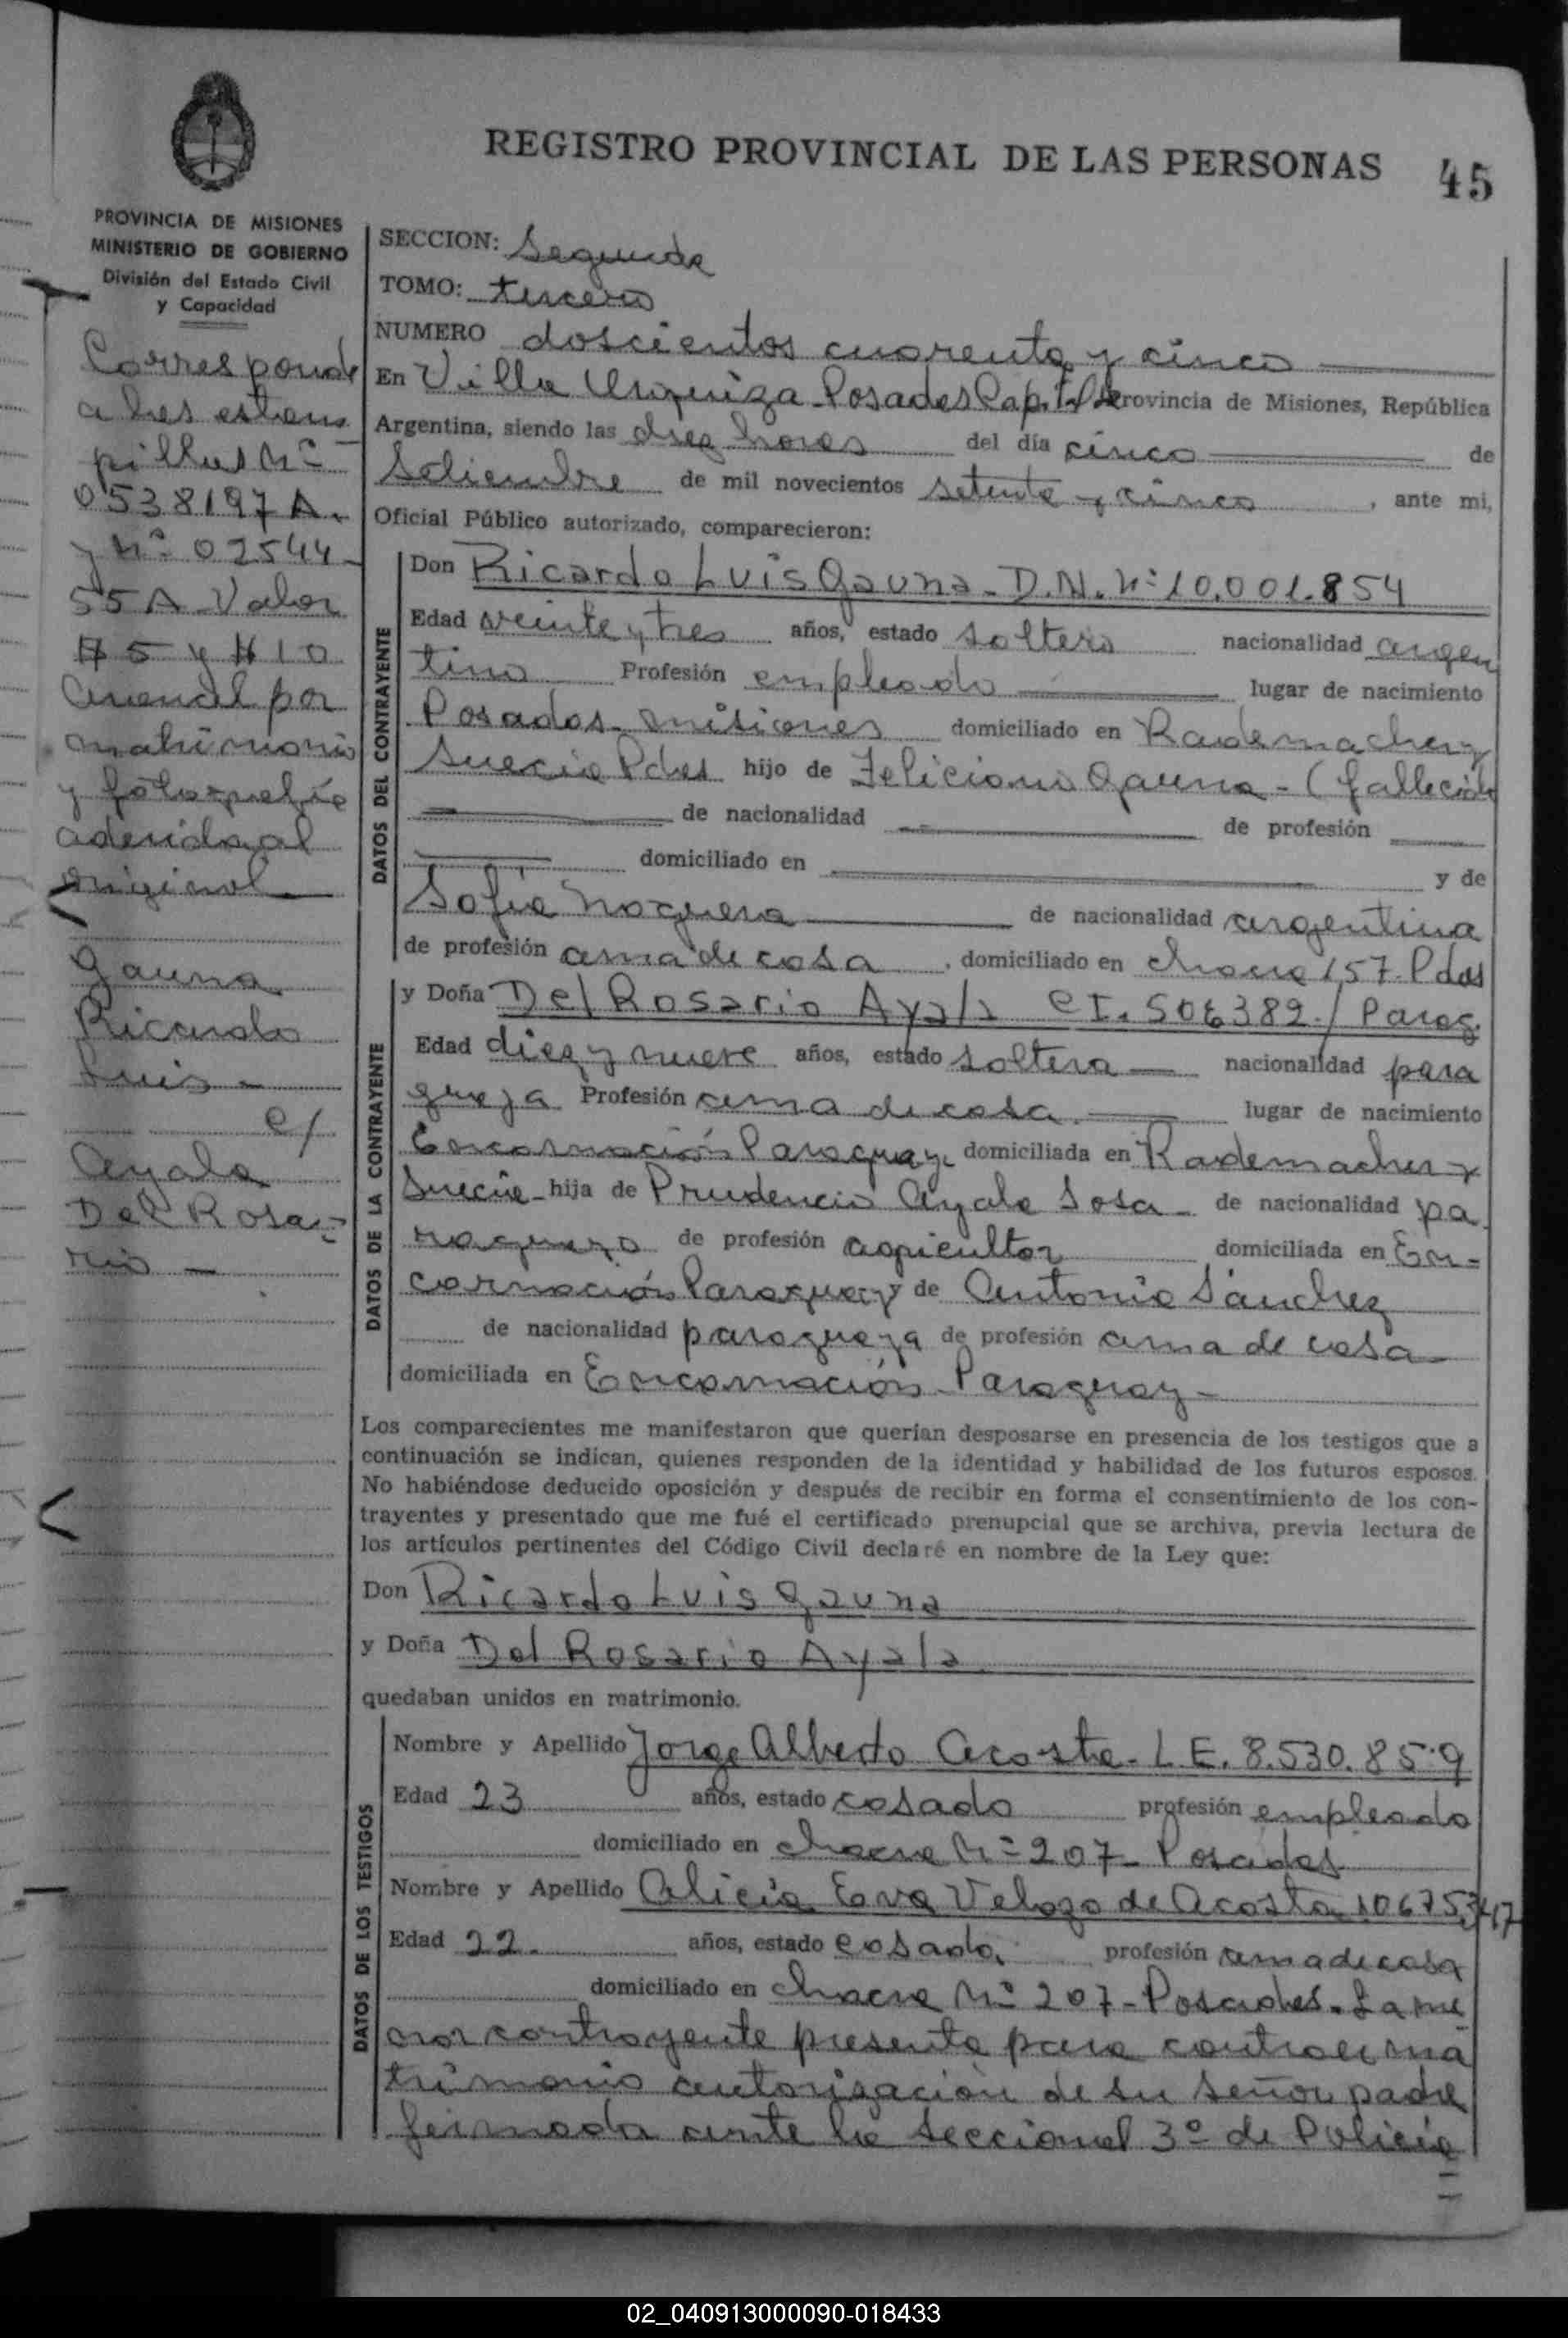 REGISTRO PROVINCIAL DE LAS PERSONAS 45
PROVINCIA DE MISIONES
MINISTERIO DE GOBIERNO
División del Estado Civil
y Capacidad
Corresponde
a las estam
pillas Nº
0538197 A.
y Nº 02544-
55 A Valor
$ 5 y $ 10
Arancel por
matrimonio
y fotografía
aderida al
original
Gauna
Ricardo
Luis -
c/
Ayala
Del Rosa-
rio -
SECCION: Segunda
TOMO: tercero
NUMERO doscientos cuarenta y cinco
En Villa Urquiza Posadas Capital Provincia de Misiones, República
Argentina, siendo las diez horas del día cinco de
Setiembre de mil novecientos setenta y cinco, ante mi,
Oficial Público autorizado, comparecieron:
DATOS DEL CONTRAYENTE
Don Ricardo Luis Gauna - D.N. Nº 10.001.854
Edad veinte y tres años, estado soltero nacionalidad argen
tino Profesión empleado lugar de nacimiento
Posadas - Misiones domiciliado en Rademacher y
Suecia Pdas hijo de Feliciano Gauna - (fallecido
de nacionalidad de profesión
domiciliado en y de
Sofia Noguera de nacionalidad argentina
de profesión ama de casa, domiciliado en chacra 157 Pdas
DATOS DE LA CONTRAYENTE
y Doña Del Rosario Ayala CI. 506382 / Parag.
Edad diez y nueve años, estado soltera nacionalidad para
guaya Profesión ama de casa lugar de nacimiento
Encarnación Paraguay domiciliada en Rademacher y
Suecia - hija de Prudencio Ayala Sosa - de nacionalidad pa
raguayo de profesión agricultor domiciliada en En-
carnación Paraguay y de Antonia Sánchez
de nacionalidad paraguaya de profesión ama de casa
domiciliada en Encarnación - Paraguay -
Los comparecientes me manifestaron que querían desposarse en presencia de los testigos que a
continuación se indican, quienes responden de la identidad y habilidad de los futuros esposos.
No habiéndose deducido oposición y después de recibir en forma el consentimiento de los con-
trayentes y presentado que me fué el certificado prenupcial que se archiva, previa lectura de
los artículos pertinentes del Código Civil declaré en nombre de la Ley que:
Don Ricardo Luis Gauna
y Doña Del Rosario Ayala
quedaban unidos en matrimonio.
DATOS DE LOS TESTIGOS
Nombre y Apellido Jorge Alberto Acosta - L.E. 8.530.859
Edad 23 años, estado casado profesión empleado
domiciliado en chacra Nº 207 - Posadas
Nombre y Apellido Alicia Eva Velozo de Acosta
Edad 22. años, estado casada profesión ama de casa
domiciliado en chacra Nº 207 - Posadas. La me
nor contrayente presenta para contraer ma
trimonio autorización de su señor padre
firmada ante la seccional 3º de Policía
02_040913000090-018433